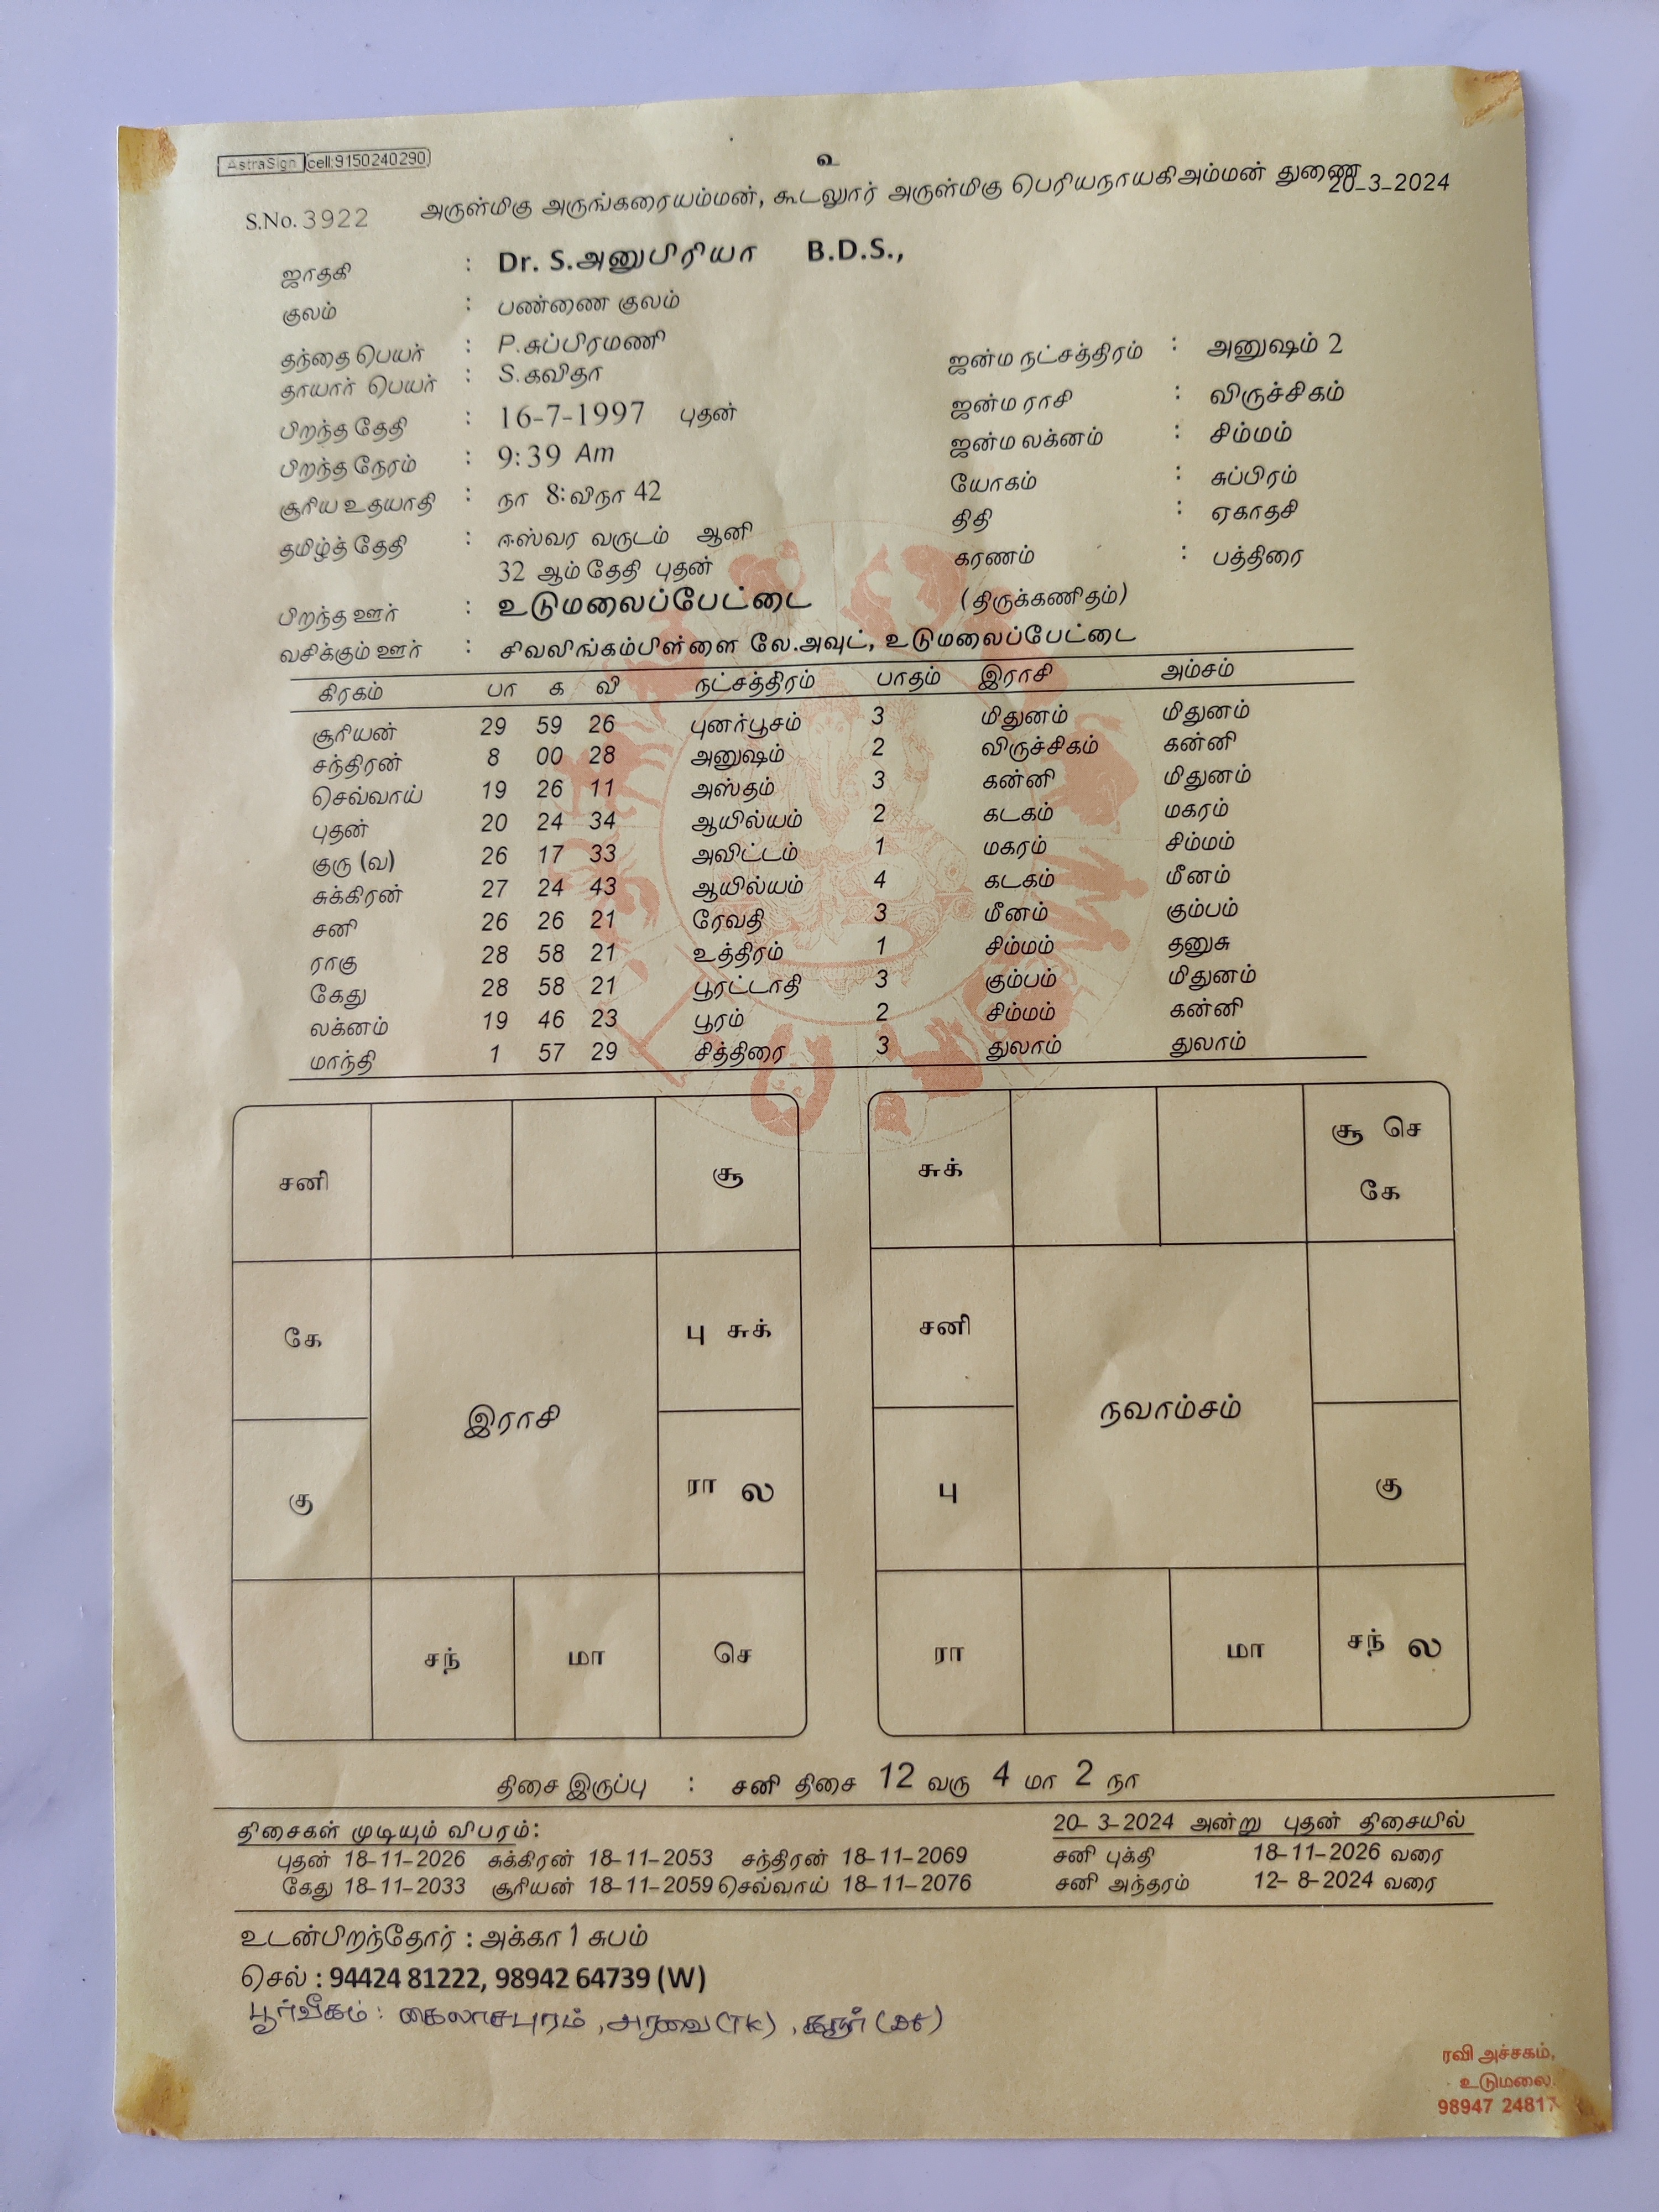 AstraSign cell:9150240290
உ
அருள்மிகு அருங்கரையம்மன், கூடலூர் அருள்மிகு பெரியநாயகிஅம்மன் துணை 20-3-2024
S.No. 3922
ஜாதகி : Dr. S.அனுபிரியா B.D.S.,
குலம் : பண்ணை குலம்
தந்தை பெயர் : P.சுப்பிரமணி
தாயார் பெயர் : S.கவிதா
பிறந்த தேதி : 16-7-1997 புதன்
பிறந்த நேரம் : 9:39 Am
சூரிய உதயாதி : நா 8:விநா 42
தமிழ்த் தேதி : ஈஸ்வர வருடம் ஆனி
32 ஆம் தேதி புதன்
ஜன்ம நட்சத்திரம் : அனுஷம் 2
ஜன்ம ராசி : விருச்சிகம்
ஜன்ம லக்னம் : சிம்மம்
யோகம் : சுப்பிரம்
திதி : ஏகாதசி
கரணம் : பத்திரை
பிறந்த ஊர் : உடுமலைப்பேட்டை (திருக்கணிதம்)
வசிக்கும் ஊர் : சிவலிங்கம்பிள்ளை லே.அவுட், உடுமலைப்பேட்டை
கிரகம் பா க வி நட்சத்திரம் பாதம் இராசி அம்சம்
சூரியன் 29 59 26 புனர்பூசம் 3 மிதுனம் மிதுனம்
சந்திரன் 8 00 28 அனுஷம் 2 விருச்சிகம் கன்னி
செவ்வாய் 19 26 11 அஸ்தம் 3 கன்னி மிதுனம்
புதன் 20 24 34 ஆயில்யம் 2 கடகம் மகரம்
குரு (வ) 26 17 33 அவிட்டம் 1 மகரம் சிம்மம்
சுக்கிரன் 27 24 43 ஆயில்யம் 4 கடகம் மீனம்
சனி 26 26 21 ரேவதி 3 மீனம் கும்பம்
ராகு 28 58 21 உத்திரம் 1 சிம்மம் தனுசு
கேது 28 58 21 பூரட்டாதி 3 கும்பம் மிதுனம்
லக்னம் 19 46 23 பூரம் 2 சிம்மம் கன்னி
மாந்தி 1 57 29 சித்திரை 3 துலாம் துலாம்
சனி சூ
கே பு சுக்
இராசி
கு ரா ல
சந் மா செ
சுக் சூ செ
கே
சனி
நவாம்சம்
பு கு
ரா மா சந் ல
திசை இருப்பு : சனி திசை 12 வரு 4 மா 2 நா
திசைகள் முடியும் விபரம்:
புதன் 18-11-2026 சுக்கிரன் 18-11-2053 சந்திரன் 18-11-2069
கேது 18-11-2033 சூரியன் 18-11-2059 செவ்வாய் 18-11-2076
20- 3-2024 அன்று புதன் திசையில்
சனி புக்தி 18-11-2026 வரை
சனி அந்தரம் 12- 8-2024 வரை
உடன்பிறந்தோர் : அக்கா 1 சுபம்
செல் : 94424 81222, 98942 64739 (W)
பூர்வீகம் : கைலாசபுரம், அரவை (TK),
ரவி அச்சகம்,
உடுமலை.
98947 24817